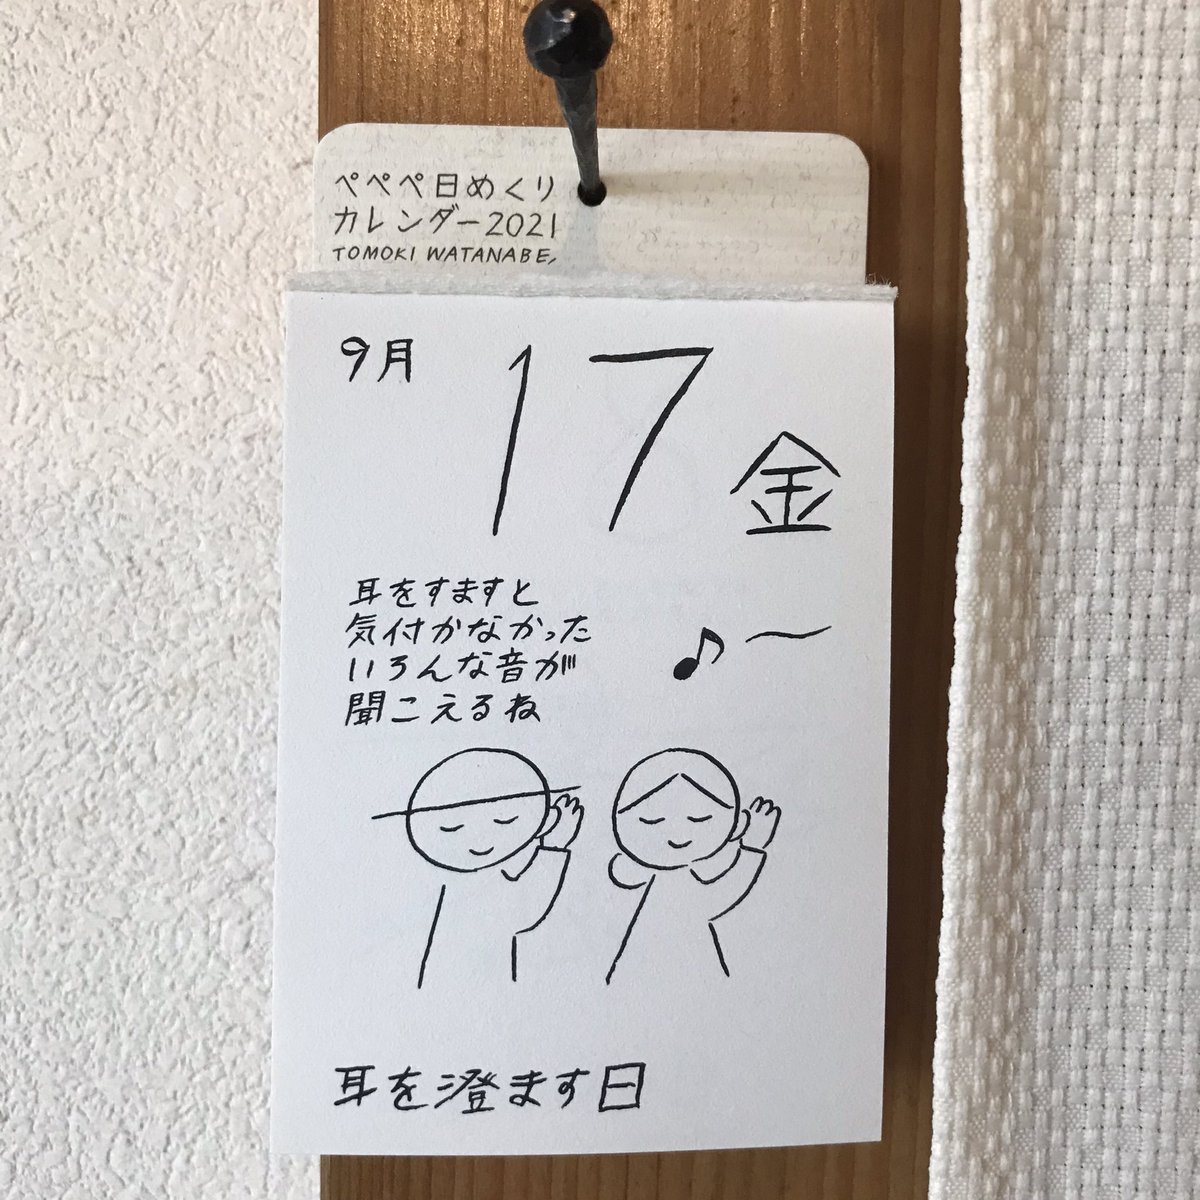 ぺぺぺ日めくり
カレンダー2021
TOMOKI WATANABE,
9月
17
金
耳をすますと
気付かなかった
いろんな音が
聞こえるね
耳を澄ます日